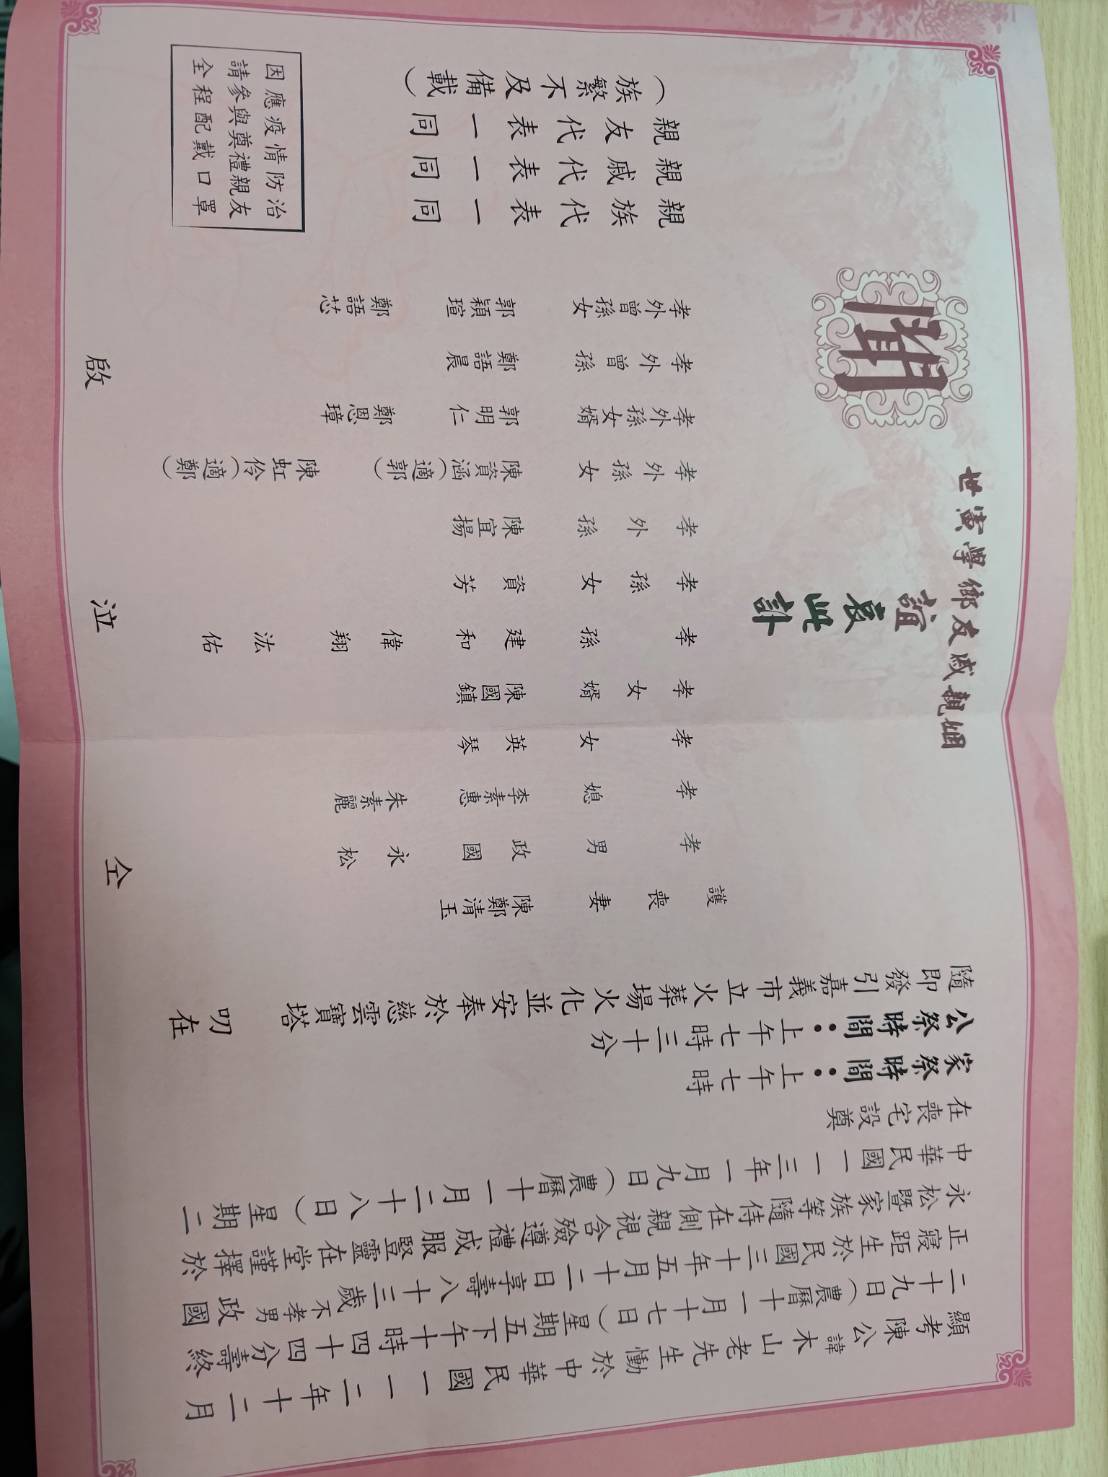 顯考陳公諱木山老先生慟於中華民國一一二年十二月
二十九日（農曆十一月十七日）星期五下午十時四十四分壽終
正寢距生於民國三十年五月十二日享壽八十三歲不孝男政國
永松暨家族等隨侍在側親視含殮遵禮成服豎靈在堂謹擇於
中華民國一一三年一月九日（農曆十一月二十八日）星期二
在喪宅設奠
家祭時間：上午七時
公祭時間：上午七時三十分
隨即發引嘉義市立火葬場火化並安奉於慈雲寶塔 叨在
姻親戚友鄉學寅世
誼哀此訃
聞
護喪妻 陳鄭清玉
孝男 政國 永松
孝媳 李素惠 朱素麗
孝女 英琴
孝女婿 陳國鎮
孝孫 建和 偉翔 浤佑
孝孫女 資芳
孝外孫 陳宜揚
孝外孫女 陳資涵（適郭） 陳虹伶（適鄭）
孝外孫女婿 郭明仁 鄭恩璋
孝外曾孫 鄭語晨
孝外曾孫女 郭穎瑄 鄭語芯
親族代表一同
親戚代表一同
親友代表一同
（族繁不及備載）
仝 泣 啟
因應疫情防治
請參與奠禮親友
全程配戴口罩